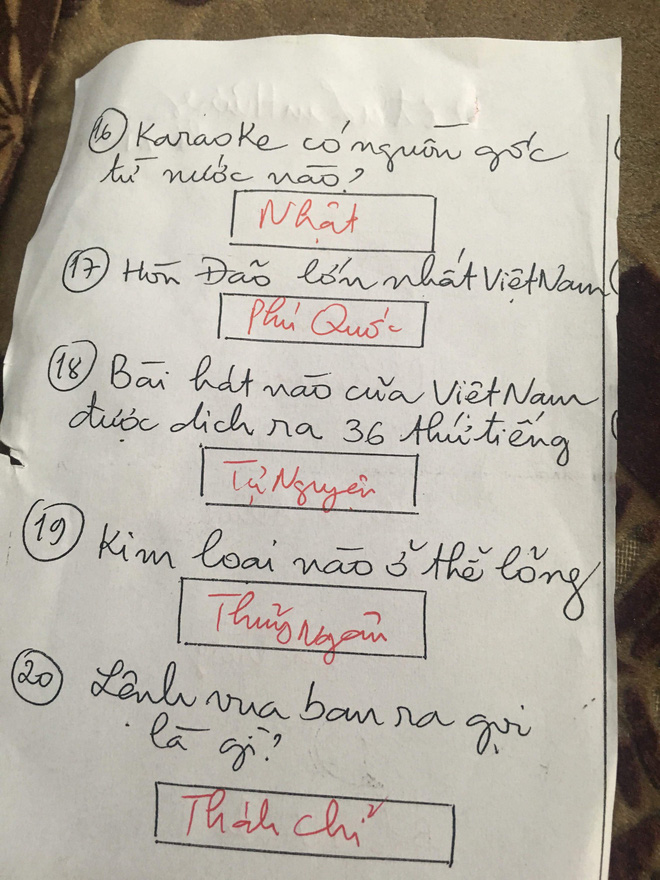 16 Karaoke có nguồn gốc
từ nước nào?
Nhật
17 Hòn Đão lớn nhất Việt Nam
Phú Quốc
18 Bài hát nào của Việt Nam
được dịch ra 36 thứ tiếng
Tự Nguyện
19 Kim loại nào ở thể lõng
Thuỹ Ngân
20 Lệnh vua ban ra gọi
là gì?
Thánh chỉ